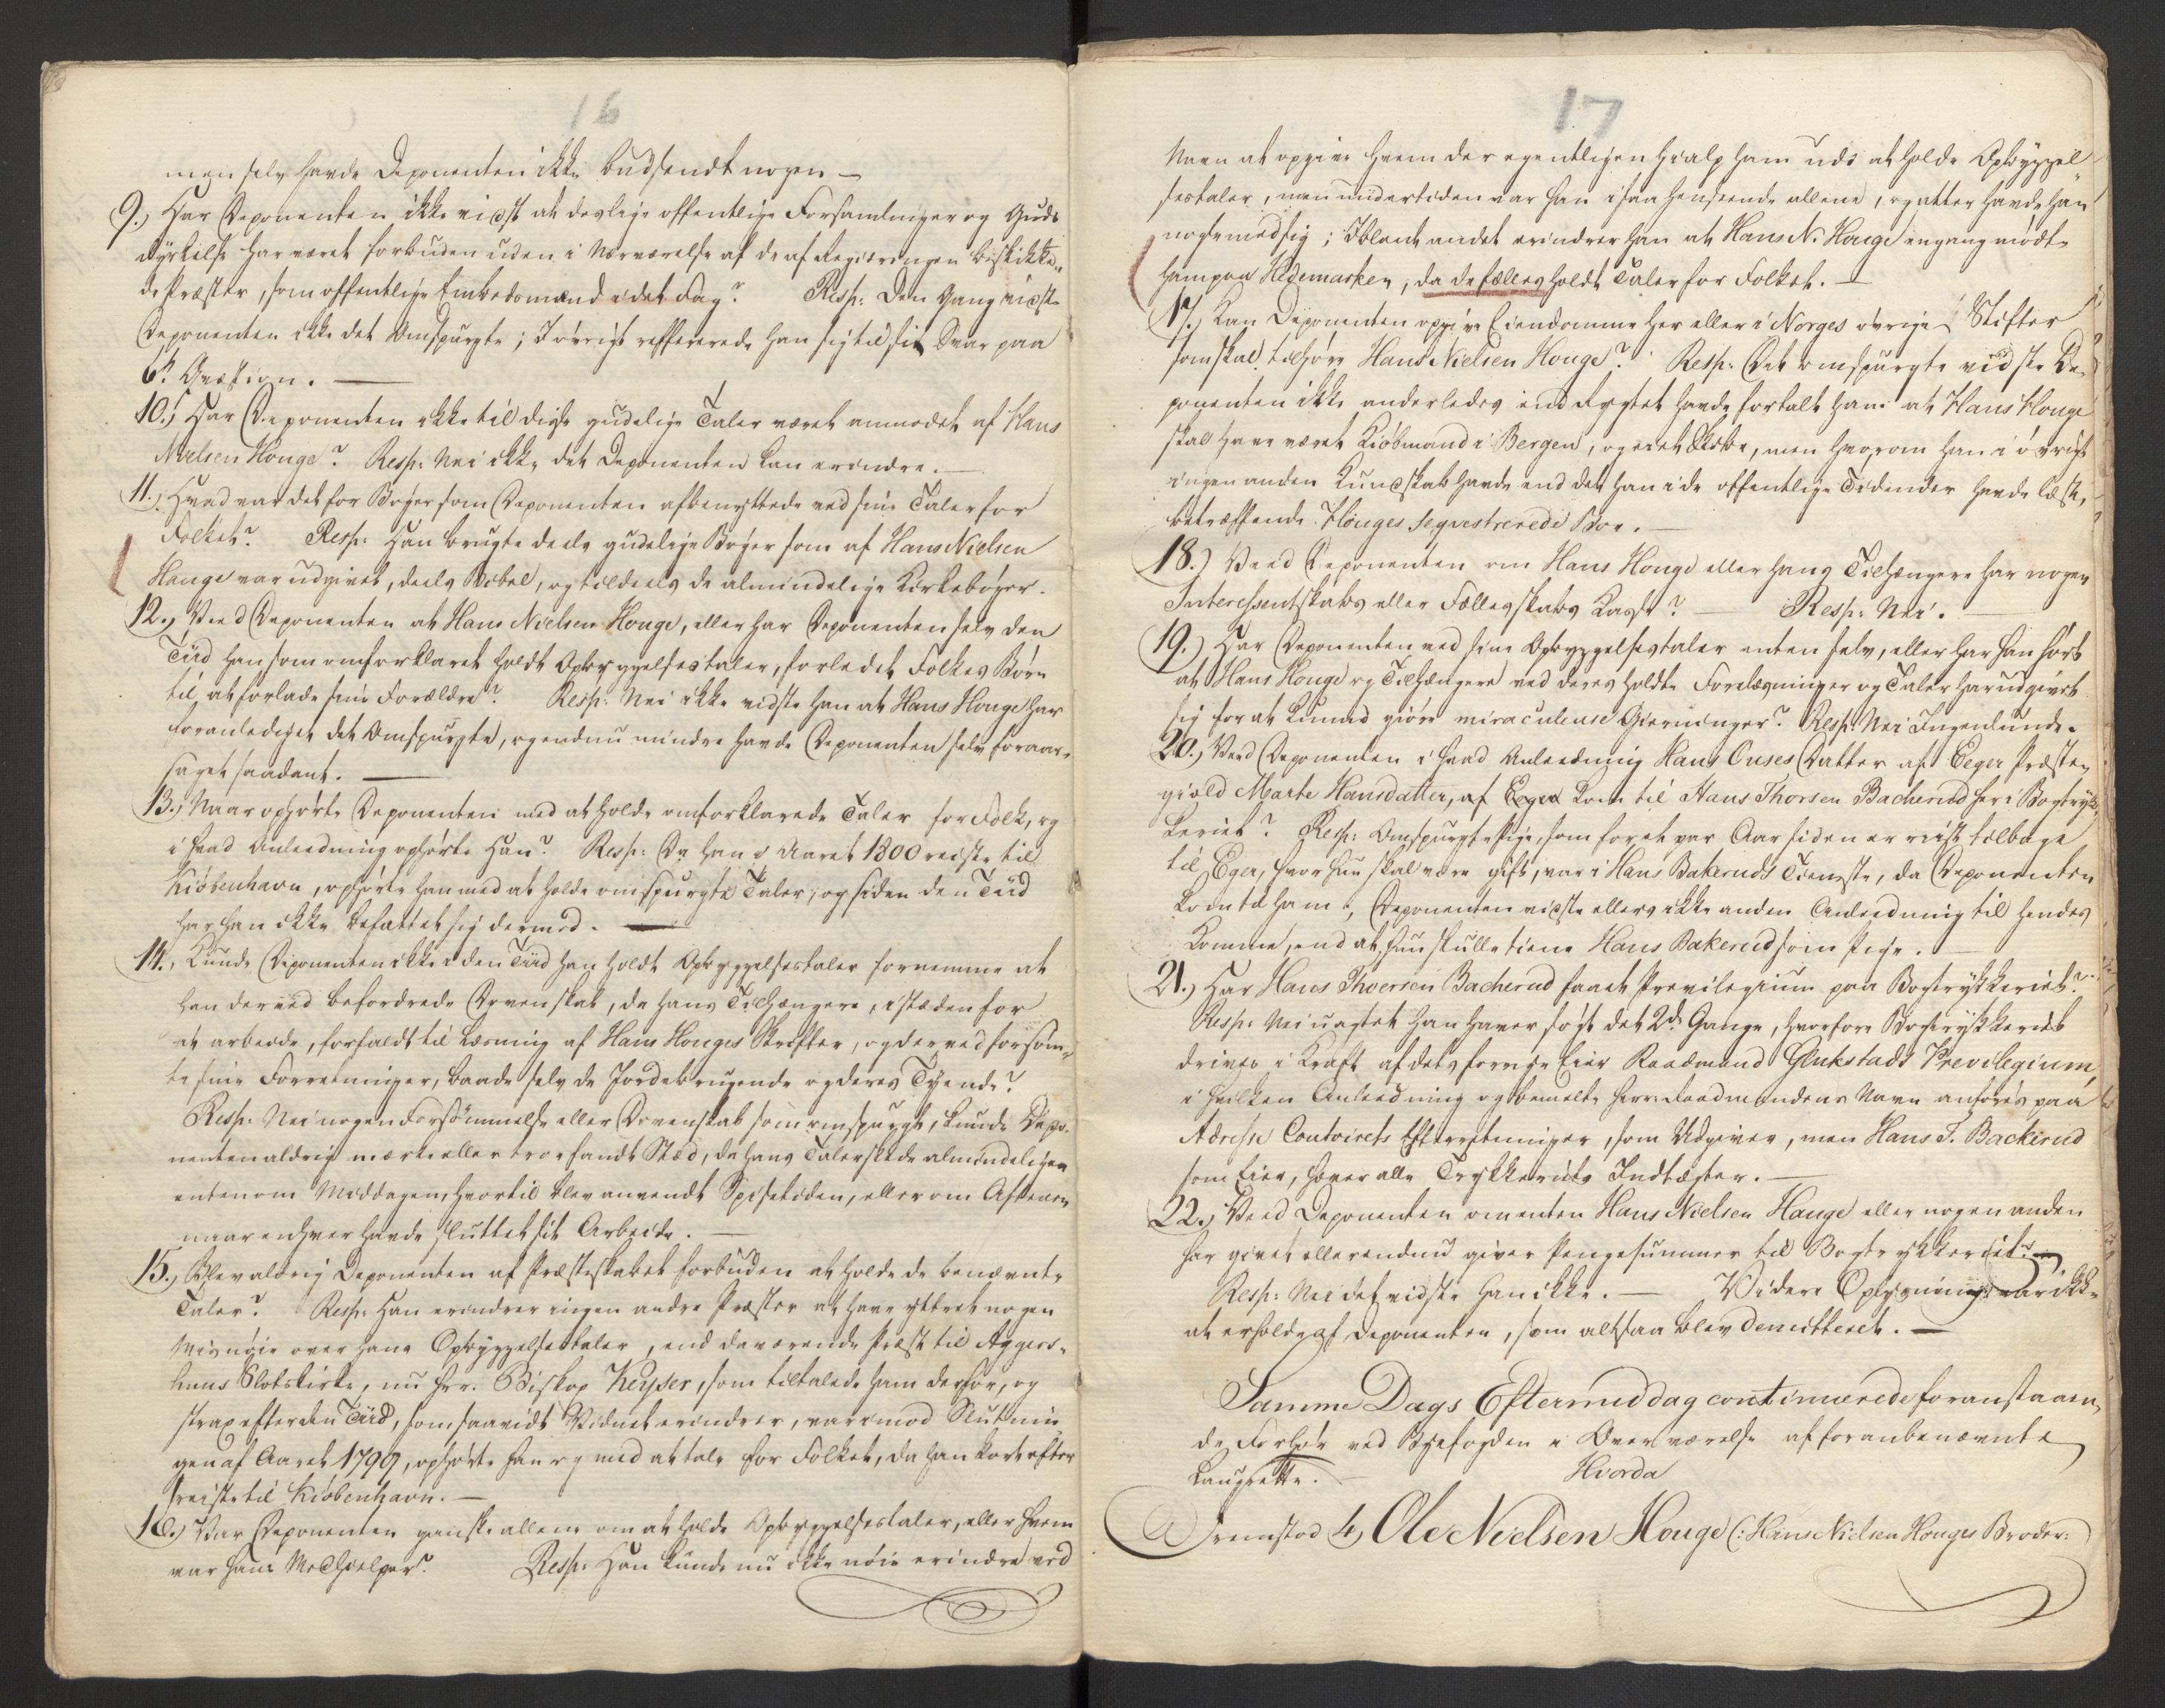 16
men selv havde Deponenten ikke budsendt nogen —
9.) Har Deponenten ikke vidst at deslige offentlige Forsamlinger og Guds
dyrkelse har været forbuden uden i Nærværelse af de af Regieringen beskikke-
de Præster, som offentlige Embedsmænd i det Fag? Resp: Den Gang vidste
Deponenten ikke det Omspurgte; I øvrigt reffererede han sig til sit Svar paa
6te Qvæstion. —
10.) Har Deponenten ikke til disse gudelige Taler været anmodet af Hans
Nielsen Houge? Resp: Nei ikke det Deponenten kan erindre. —
11.) Hvad var det for Bøger som Deponenten afbenyttede ved sine Taler for
Folket? Resp: Han brugte deels gudelige Bøger som af Hans Nielsen
Hauge var udgivet, deels Bibel, og tildeels de almindelige Kirkebøger.
12.) Veed Deponenten at Hans Nielsen Houge, eller har Deponenten selv den
Tiid han som omforklaret holdt Opbyggelsestaler, forledet Folkes Børn
til at forlade sine Forældre? Resp: Nei ikke vidste han at Hans Houge har
foranlediget det Omspurgte, og endnu mindre havde Deponenten selv foraar-
saget saadant. —
13.) Naar ophørte Deponenten med at holde omforklarede Taler for Folk, og
i hvad Anledning ophørte han? Resp: Da han i Aaret 1800 reiste til
Kiøbenhavn, ophørte han med at holde omspurgte Taler, og siden den Tiid
har han ikke befattet sig dermed. —
14.) Kunde Deponenten ikke i den Tiid han holdt Opbyggelsestaler fornemme at
han derved befordrede Dovenskab, da hans Tilhængere, istæden for
at arbeide, forfaldt til Læsning af Hans Houges Skrifter, og derved forsøm-
te sine Forretninger, baade selv de Jordbrugende og deres Tyende?
Resp: Nei nogen Forsømmelse eller Dovenskab som omspurgt, kunde Depo-
nenten aldrig mærke eller troe fandt Stæd, da hans Taler skede almindeligen
enten om Middagen, hvortil blev anvendt Spisetiden, eller om Aftenen
naar enhver havde sluttet sit Arbeide. —
15.) Blev aldrig Deponenten af Præsteskabet forbuden at holde de benævnte
Taler? Resp: Han erindrer ingen andre Præster at have yttret nogen
Misnøie over hans Opbyggelsestaler, end daværende Præst til Aggers-
huus Slotskirke, nu Hr. Biskop Keyser, som tiltalede ham derfor, og
strax efter den Tiid, som saavidt Vidnet erindrer, var imod Slutnin
gen af Aaret 1799, ophørte han og med at tale for Folket, da han kort efter
reiste til Kiøbenhavn. —
16.) Var Deponenten ganske allene om at holde Opbyggelsestaler, eller hvem
var hans Medhielper? Resp: Han kunde nu ikke nøie erindre ved
17
Navn at opgive hvem der egentligen hialp ham udi at holde Opbyggel-
sestaler, men undertiden var han i saa henseende allene, og atter havde han
nogle med sig; Iblant andet erindrer han at Hans N. Houge engang mødte
ham paa Hedemarken, da de fælles holdt Taler for Folket. —
17.) Kan Deponenten opgive Eiendomme her eller i Norges øvrige Stifter
som skal tilhøre Hans Nielsen Houge? Resp: Det omspurgte vidste De-
ponenten ikke anderledes end Rygtet havde fortalt ham at Hans Houge
skal have været Kiøbmand i Bergen, og eiet Skibe, men hvorom han i øvrigt
ingen anden Kundskab havde end det han i de offentlige Tidender havde læst,
betræffende Houges seqvestrerede Boe. —
18.) Veed Deponenten om Hans Houge eller hans Tilhængere har nogen
Interessentskabs eller Fællesskabs Kasse? — Resp: Nei.
19.) Har Deponenten ved sine Opbyggelsestaler enten selv, eller har han hørt
at Hans Houge og Tilhængere ved deres holdte Forelæsninger og Taler har udgivet
sig for at kunne giøre miraculeuse Gierninger? Resp: Nei Ingenlunde.
20.) Veed Deponenten i hvad Anledning Hans Ouses Datter af Eeger Præste-
giæld Marte Hansdatter, af Eeger kom til Hans Thorsen Bacherud her i Bogtryk-
keriet? Resp: Omspurgte Pige, som for et par Aar siden er reist tilbage
til Eger, hvor hun skal være gift, var i Hans Bakeruds Tieneste, da Deponenten
kom til ham, Deponenten vidste ellers ikke anden Anledning til hendes
Komme, end at hun skulle tiene Hans Bakerud som Pige. —
21.) Har Hans Thoersen Bacherud faaet Previlegium paa Bogtrykkeriet?
Resp: Nei uagtet han haver søgt det 2de Gange, hvorfore Bogtrykkeriet
drives i Kraft af dets forrige Eier Raadmand Glukstads Previlegium,
i hvilken Anledning og bemelte Herr Raadmandens Navn anføres paa
Adresse Contoirets Efterretninger, som Udgiver, men Hans T. Backerud
som Eier, hæver alle Trykkeriets Indtægter. —
22.) Veed Deponenten om enten Hans Nielsen Hauge eller nogen anden
har givet eller endnu giver Pengesummer til Bogtrykkeriet? —
Resp: Nei det vidste han ikke. — Videre Oplysning var ikke
at erholde af Deponenten, som altsaa blev demitteret. —
Samme Dags Eftermiddag continuerede foranstaaen-
de Forhør ved Byefogden i Overværelse af foranbenævnte
Laugrette. Hvorda
Fremstod 4) Ole Nielsen Houge (: Hans Nielsen Houges Broder:)